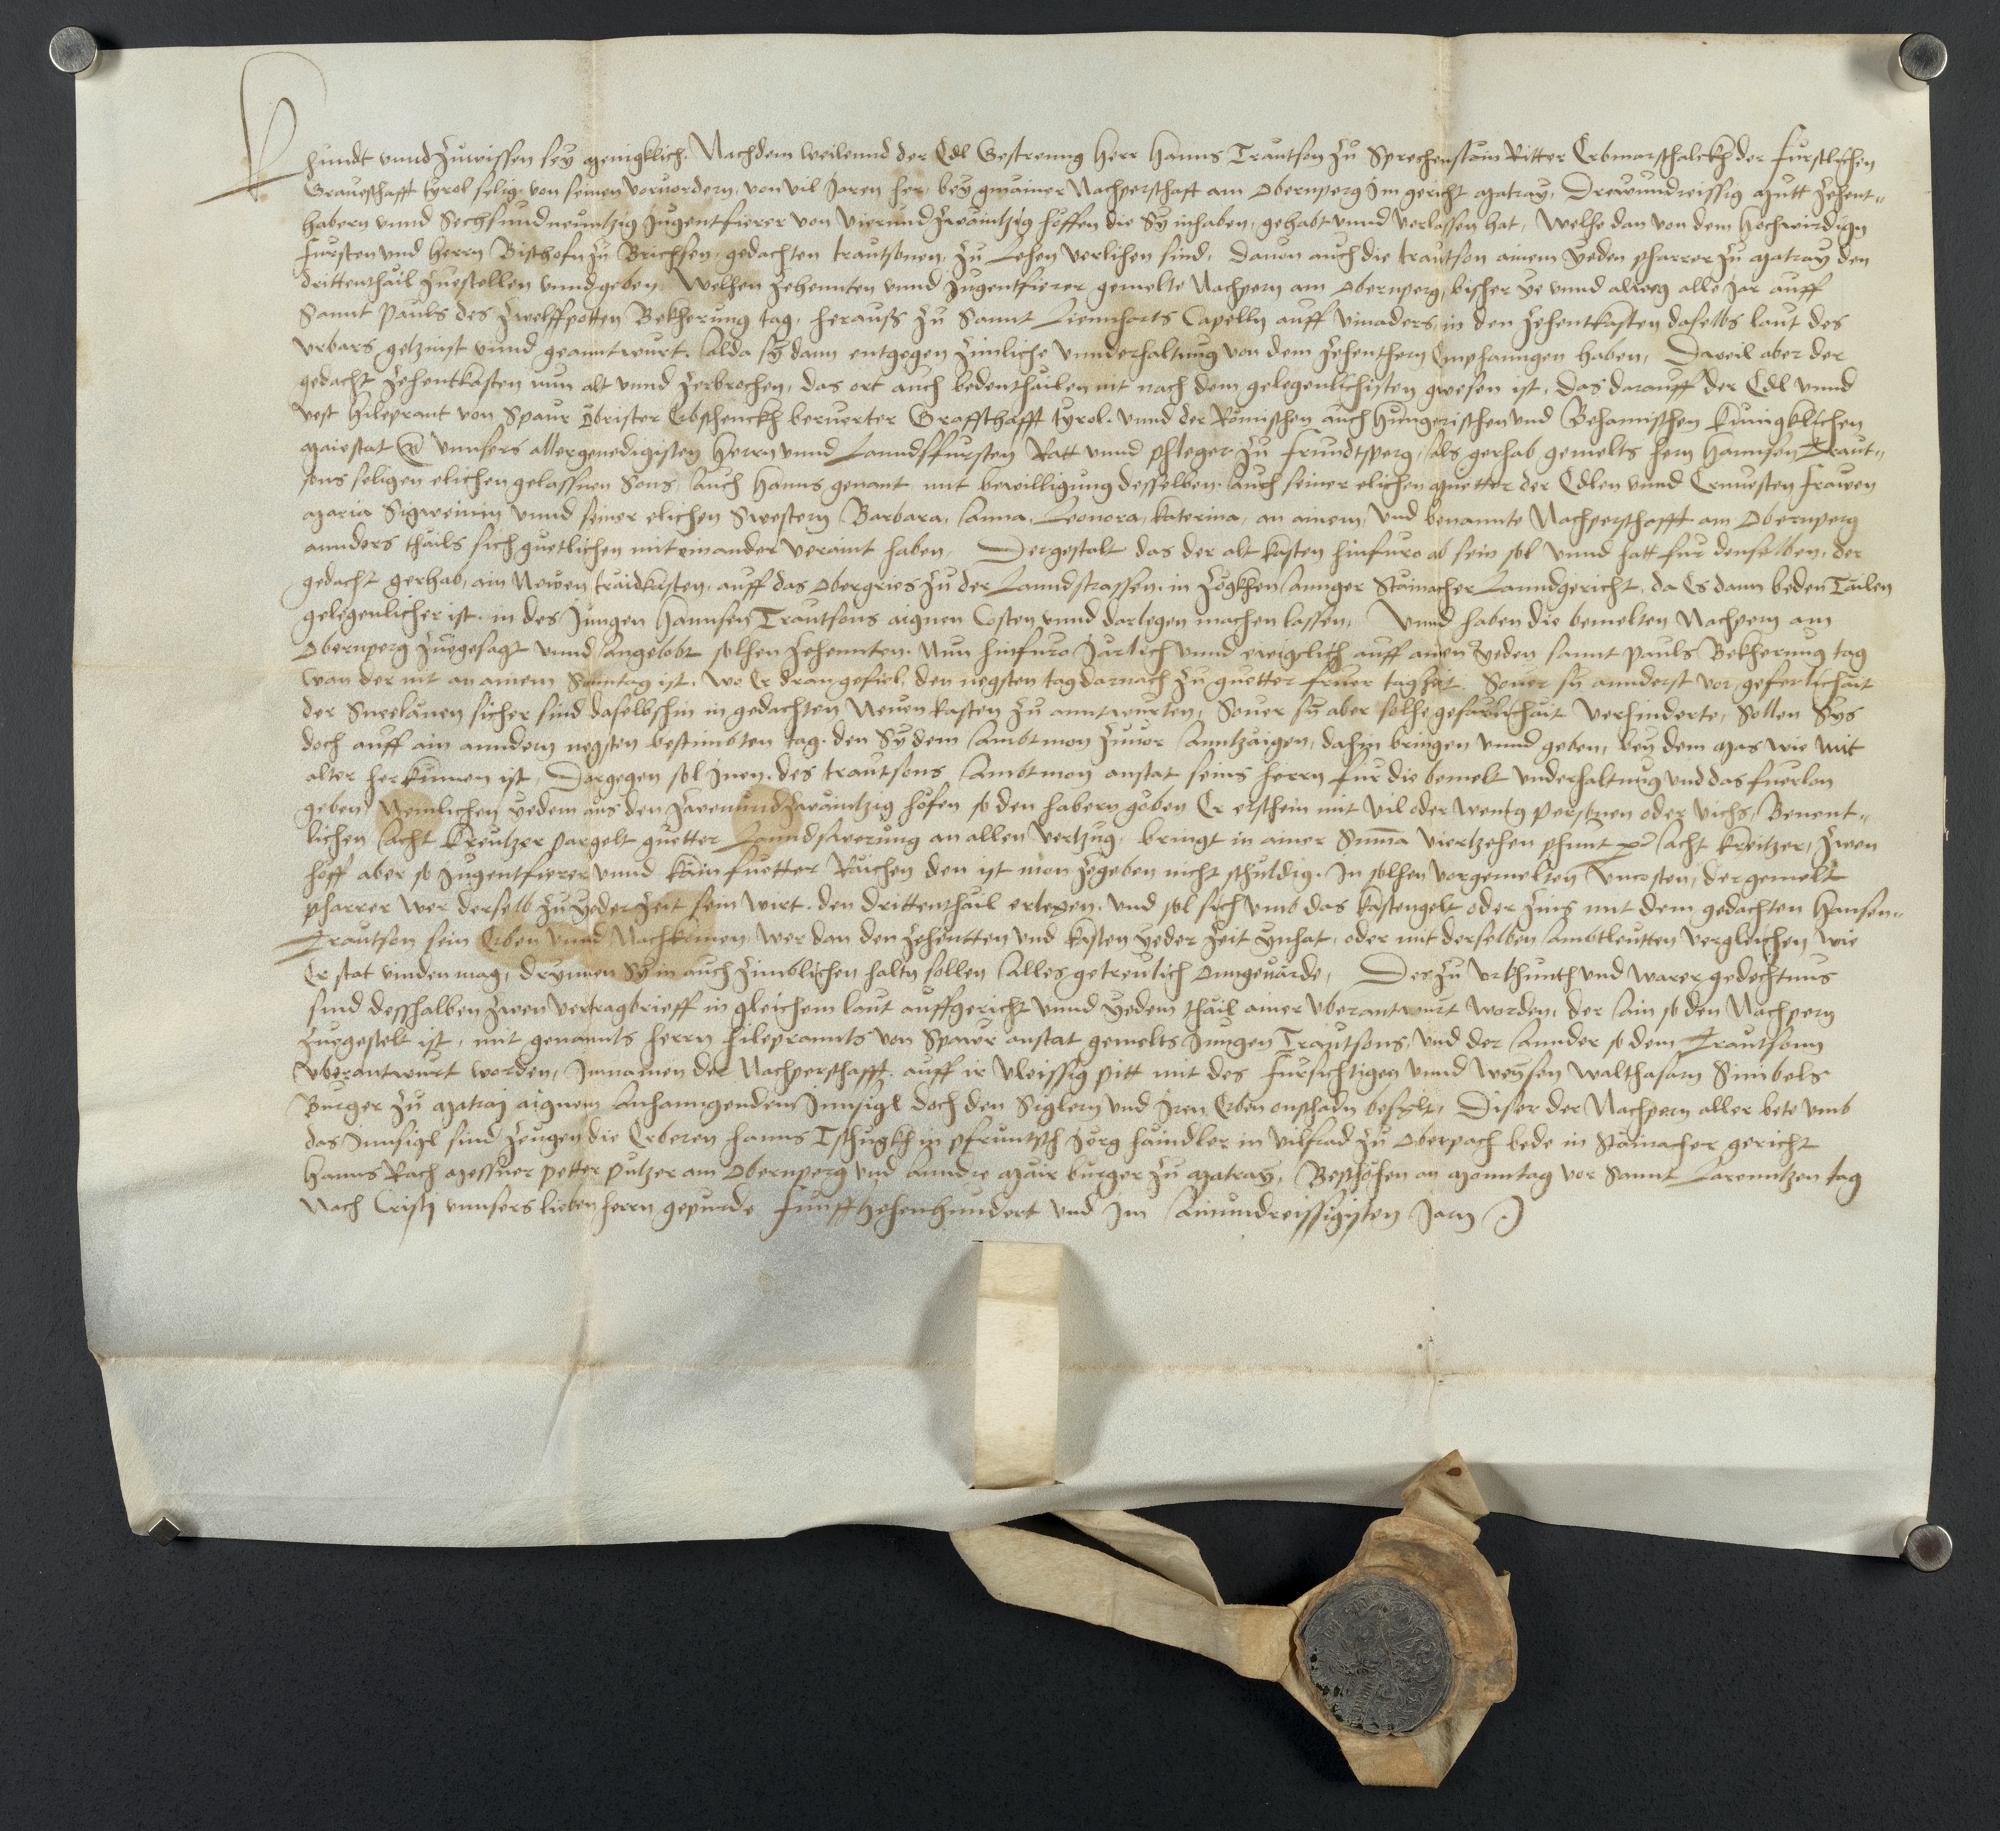 Khundt vnnd zuwissen sey menigklich. Nachdem weilennd der Edl Gestreng Herr Hanns Trautson zu Sprechenstain Ritter Erbmarschalckh der Furstlichen
Graueschafft tyrol selig von seinen voruordern, von vil Jaren her, bey gmainer Nachperschaft am Obernperg Jm gericht Matray, Drewundreissig Mutt zehent-
habern vnnd Sechsundneuntzig Jugentfierer von Vierundzwaintzig höffen die Sy innhaben, gehabt vnnd verlassen hat, Welhe dan von dem Hochwirdign
Fursten vnd Herrn Bischofn zu Brichsen, gedachten trautsonen, zu Lehen verlihen sind, dauon auch die trautson ainem yeden pharrer zu Matray den
drittenthail zuestellen vnnd geben, Welhen zehennten vnnd Jugentfierer gemelte Nachpern am Obernperg, bisher ye vnnd alweg alle Jar auff
Sannt Pauls des zwelffpotten Bekherung tag, herauß zu Sannt Liennharts Capelln auff Vinaders, in den zehentkasten daselbs laut des
vrbars getzinst vnnd geanntwurt. Alda sy dann entgegen zimliche vnnderhaltung von dem zehenthern Emphanngen haben, Dweil aber der
gedacht zehentkasten nun alt vnnd zerbrochen, das ort auch bedenthailen nit nach dem gelegenlichisten gwesen ist, das darauff der Edl vnnd
vest Hileprant von Spaur Obrister Erbschenckh beruerter Graffschafft tyrol. vnnd der Römischen auch Hungerischen vnd Behamischen Kunigklichen
Maiestat vnnsers allergenedigisten Herrn vnnd Lanndsfursten Ratt vnnd phleger zu Frundtsperg, als gerhab gemelts hern Hannsen Traut-
sons seligen elichen gelassnen Sons, Auch Hanns genant, mit bewilligung desselben. Auch seiner elichen Muetter der Edlen vnnd Ernuesten Frawen
Maria Sigweinin vnnd seiner elichen Swestern Barbara, Anna, Leonora, Katerina, an ainem, vnd benannte Nachperschafft am Obernperg
annders thails sich guetlichen miteinander veraint haben, Dergestalt das der alt kasten hinfuro ab sein sol vnnd hatt fur denselben, der
gedacht gerhab, ain Newen traidkasten, auff das Obergries zu der Lanndstrassen, in Zögkhen Annger Stainacher Lanndgericht, da Es dann beden Tailen
gelegenlicher ist. in des Jungen Hannsen Trautsons aignen Costen vnnd darlegen machen lassen, Vnnd haben die bemelten Nachpern am
Obernperg zuegesagt vnnd Angelobt solhen zehennten. Nun hinfuro Järlich vnnd ewigclich auff ainen yeden sannt Pauls Bekherung tag
wan der nit an ainem Sonntag ist. Wo Er dran gefiel, den negsten tag darnach zu guetter fruer tag zeit. Souer sy annderst vor geferlichait
der Sneelänen sicher sind daselbshin in gedachten Neuen kasten zu anntwurten, Souer sy aber solhe gefärlichait verhinderte, Sollen Sys
doch auff ain anndern negsten bestimbten tag. den Sy dem Ambtman zuuor Anntzaigen, dahin bringen vnnd geben, bey dem Mas wie mit
alter herkumen ist, Dargegen sol Jnen. des trautsons Ambtman anstat seins herrn fur die bemelt vnderhaltnug vnd das fuerlon
geben, Nemlichen yedem aus den zwenundzwaintzig höfen so den habern geben Er erschein mit vil oder wenig personen oder vichs, Benent-
lichen Acht kreutzer pargelt guetter Lanndswerung an allen vertzug, bringt in ainer Suma viertzehen phunt Acht kreitzer, Zwen
hoff aber so Jugentfierer vnnd kain fuetter Raichen den ist man zegeben nicht schuldig. In solhen vorgemelten vncosten, der gemelt
pharrer wer derselb zu yeder zeit sein wirt, den drittenthail erlegen, vnd sol sich vmb das kastengelt oder zins mit dem gedachten Hansen
Trautson sein Erben vnnd Nachkomen, wer dan den zehentten vnd kasten yeder zeit ynhat, oder mit derselben Ambtleutten vergleichen, wie
Er stat vinden mag, drynnen Sy in auch zimblichen haltn sollen Alles getreulich Onngeuärde, Des zu vrkhunth vnd warer gedechtnus
sind desshalben zwen vertragbrieff in gleichem laut auffgericht vnnd yedem thail ainer vberantwurt worden, der Ain so den Nachpern
zuegestelt ist, mit genannts herrn Hileprannts von Spaur anstat gemelts Jungen Trautsons, vnd der Annder so dem Trautsonn
vberantwurt worden, Jnnamen der Nachperschafft. auff ir vleissig pitt mit des Fursichtigen vnnd Weysen Walthasarn Simbels
Burger zu Matray aignem Anhanngenden Jnnsigl doch den Siglern vnd Jren Erben onschadn besiglt, Diser der Nachpern aller bete vmb
das Jnnsigl sind zeugen die Erberen Hanns Tschugkh in Pfruntsch Jörg Haindler in Vilfrad zu Oberpach bede in Stainacher gericht
Hanns Rach Messner Petter Putzer am Obernperg vnd Anndre Mair burger zu Matray, Beschehen an Monntag vor Sannt Larenntzen tag
Nach Cristi vnnsers lieben herrn gepurde Funfftzehenhundert vnd Jm Ainundreissigisten Jarn